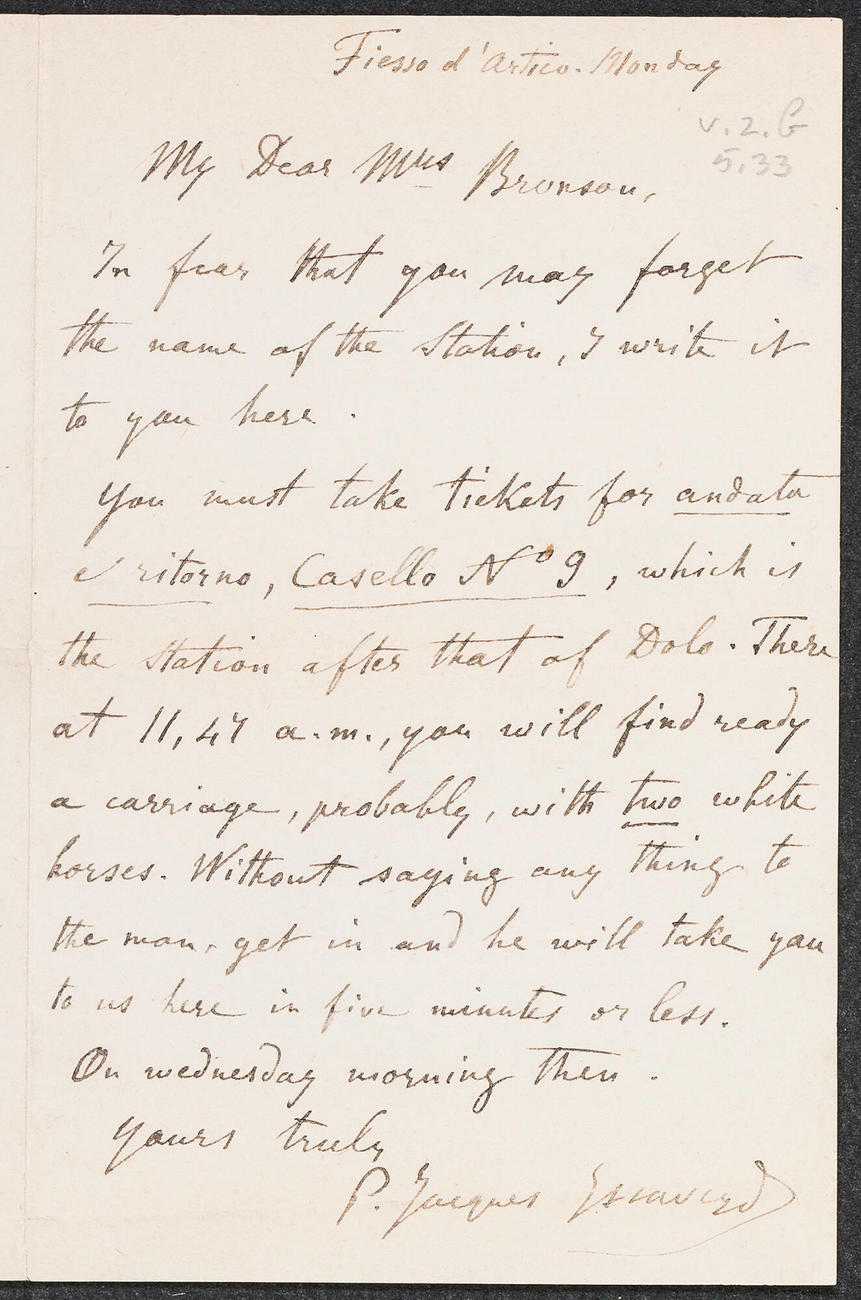 Fiesso d'Artico. Monday
v.2.G
5.33
My Dear Mrs Bronson,
In fear that you may forget
the name of the Station, I write it
to you here.
You must take tickets for andata
e ritorno, Casello No 9, which is
the station after that of Dolo. There
at 11,47 a.m., you will find ready
a carriage, probably, with two white
horses. Without saying any thing to
the man, get in and he will take you
to us here in five minutes or less.
On wednesday morning then.
Yours truly
P. Jacques Issaverd